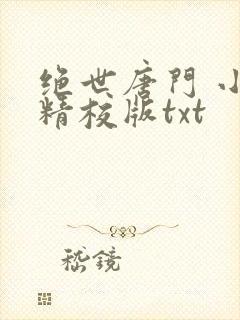 绝世唐門 小
精校版txt
嵇鏡